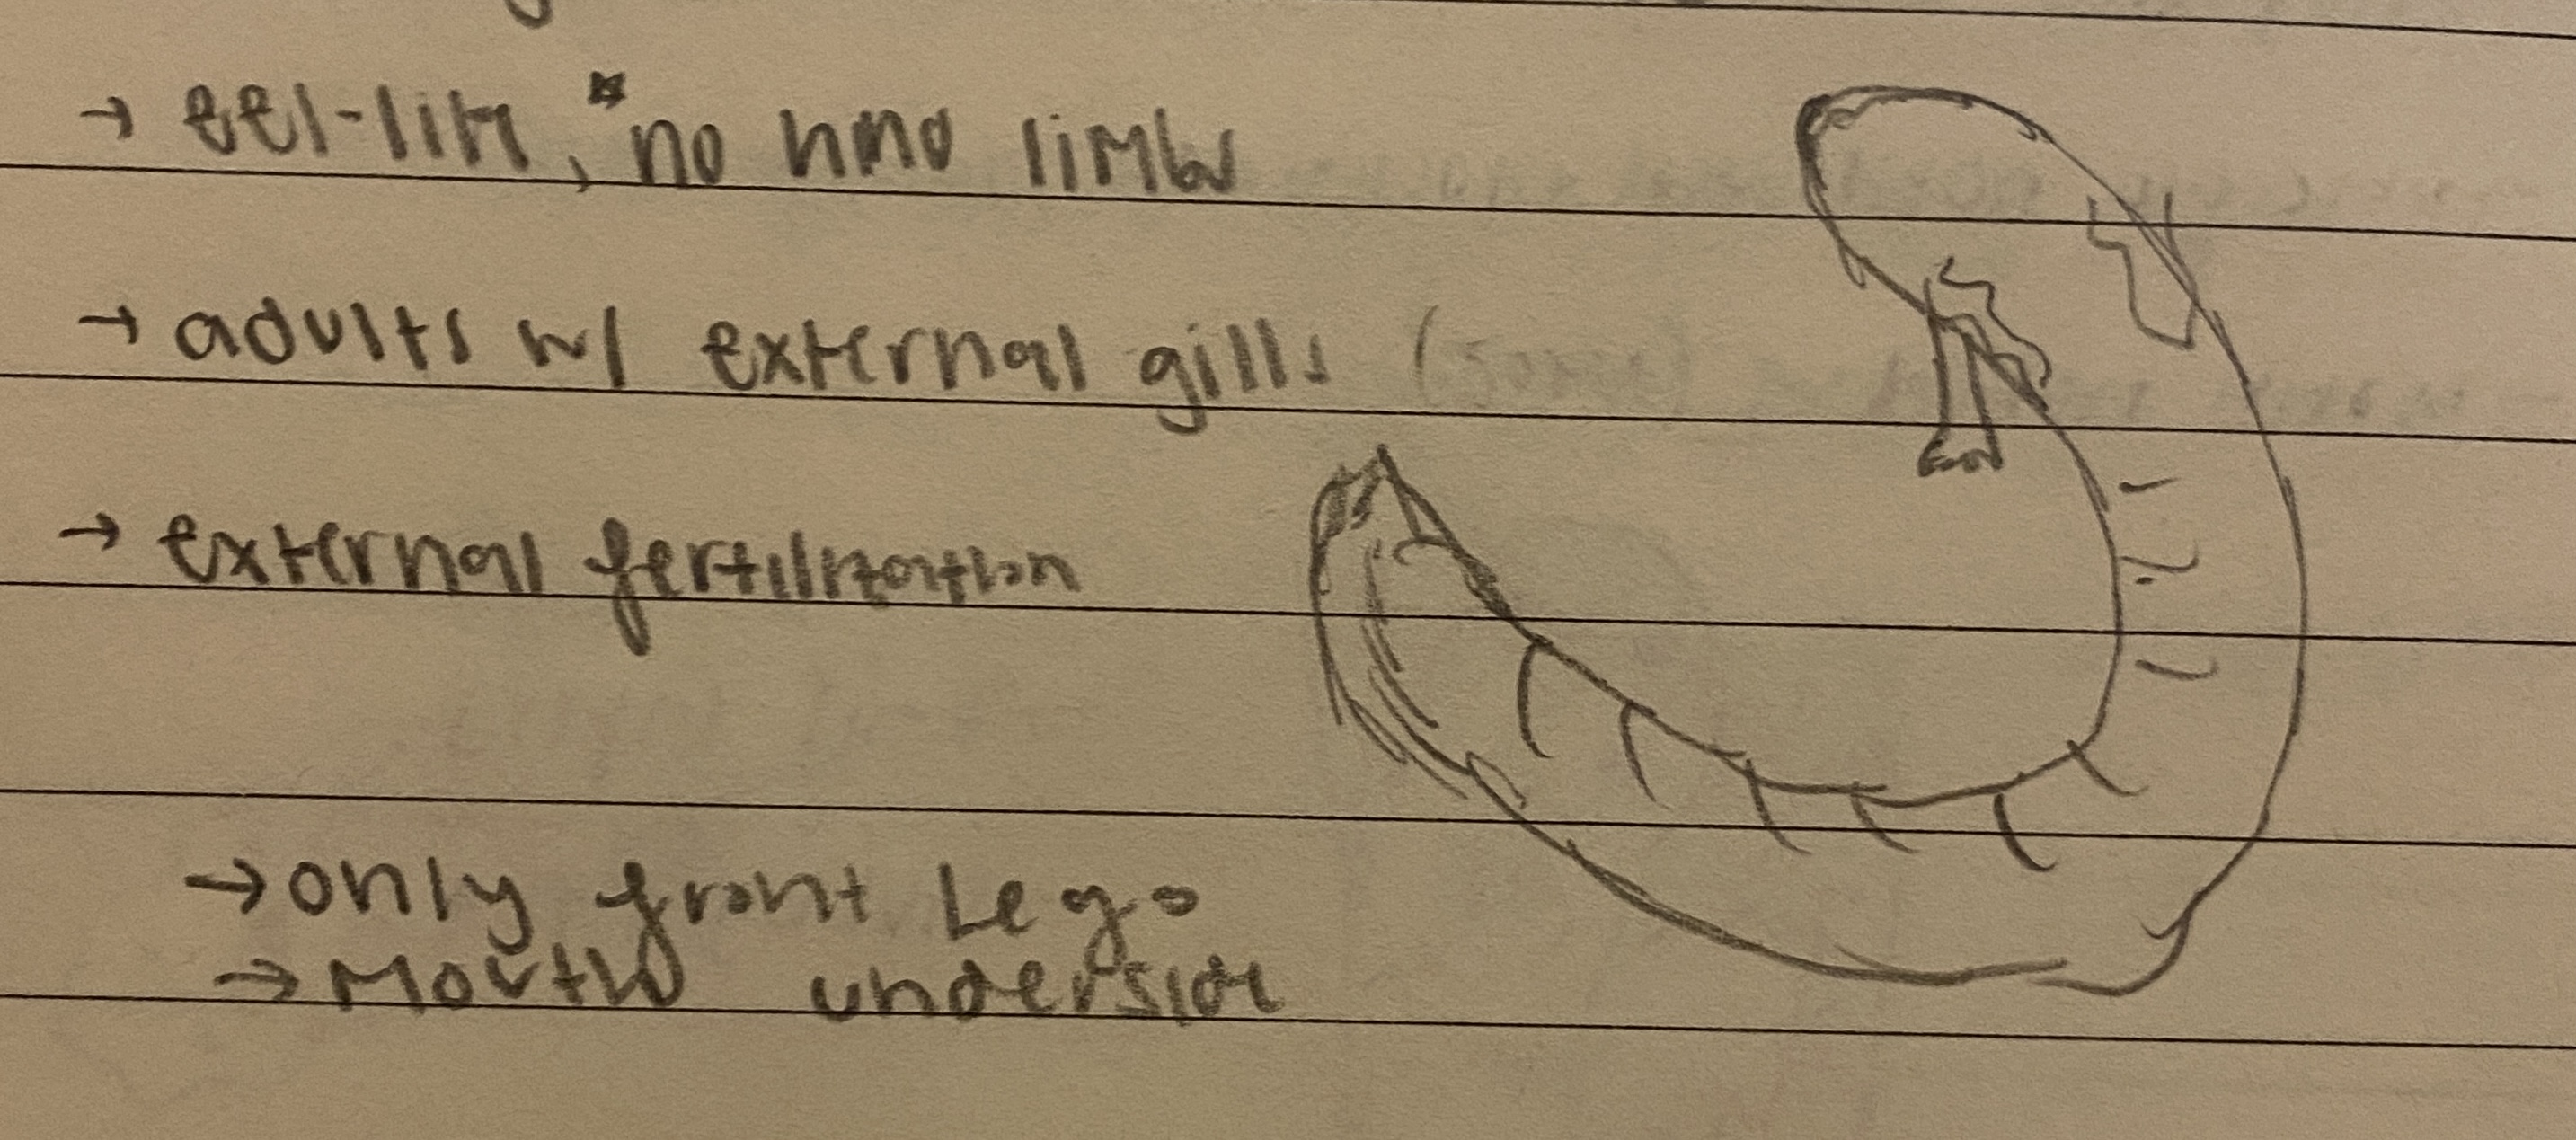 → eel-like, *no hind limbs
→ adults w/ external gills
→ external fertilization
→ only front Legs
→ Mouth underside